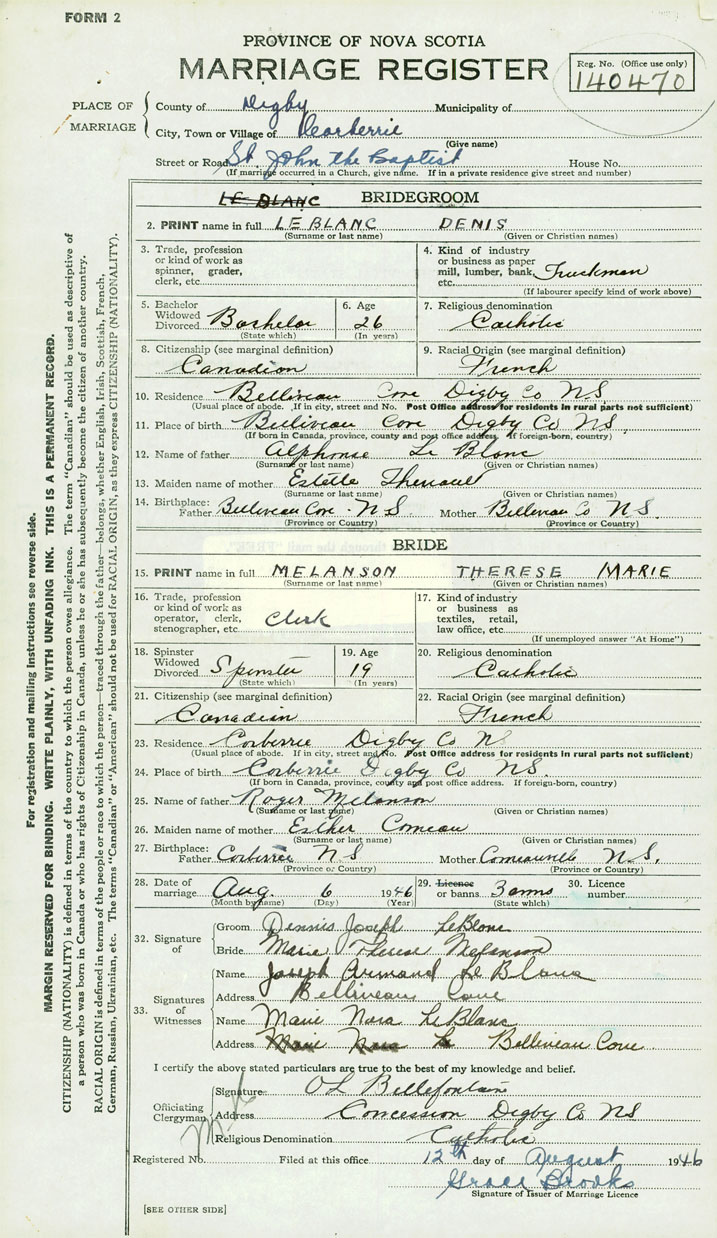 FORM 2
PROVINCE OF NOVA SCOTIA
MARRIAGE REGISTER
Reg. No. (Office use only)
140470
PLACE OF MARRIAGE
County of Digby Municipality of
City, Town or Village of
(Give name)
Street or Road St. John the Baptist House No.
(If marriage occurred in a Church, give name. If in a private residence give street and number)
LE BLANC BRIDEGROOM
2. PRINT name in full LE BLANC DENIS
(Surname or last name) (Given or Christian names)
3. Trade, profession or kind of work as spinner, grader, clerk, etc.
4. Kind of industry or business as paper mill, lumber, bank, etc. Truckman
(If labourer specify kind of work above)
5. Bachelor Widowed Divorced Bachelor
(State which)
6. Age 26
(In years)
7. Religious denomination
Catholic
8. Citizenship (see marginal definition)
Canadian
9. Racial Origin (see marginal definition)
French
10. Residence Belliveau Cove Digby Co NS
(Usual place of abode. If in city, street and No. Post Office address for residents in rural parts not sufficient)
11. Place of birth Belliveau Cove Digby Co NS.
(If born in Canada, province, county and post office address. If foreign-born, country)
12. Name of father Alphonse Le Blanc
(Surname or last name) (Given or Christian names)
13. Maiden name of mother Estelle Theriault
(Surname or last name) (Given or Christian names)
14. Birthplace: Father Belliveau Cove. NS Mother Belliveau Co NS.
(Province or Country) (Province or Country)
BRIDE
15. PRINT name in full MELANSON THERESE MARIE
(Surname or last name) (Given or Christian names)
16. Trade, profession or kind of work as operator, clerk, stenographer, etc. Clerk
17. Kind of industry or business as textiles, retail, law office, etc.
(If unemployed answer "At Home")
18. Spinster Widowed Divorced Spinster
(State which)
19. Age 19
(In years)
20. Religious denomination
Catholic
21. Citizenship (see marginal definition)
Canadian
22. Racial Origin (see marginal definition)
French
23. Residence Corberrie Digby Co NS
(Usual place of abode. If in city, street and No. Post Office address for residents in rural parts not sufficient)
24. Place of birth Corberrie Digby Co NS.
(If born in Canada, province, county and post office address. If foreign-born, country)
25. Name of father Roger Melanson
(Surname or last name) (Given or Christian names)
26. Maiden name of mother Esther Comeau
(Surname or last name) (Given or Christian names)
27. Birthplace: Father Corberrie NS Mother NS.
(Province or Country) (Province or Country)
28. Date of marriage Aug. 6 1946
(Month by name) (Day) (Year)
29. Licence or banns 3
(State which)
30. Licence number
32. Signature of
Groom Dennis Joseph LeBlanc
Bride Marie Therese Melanson
33. Signatures of Witnesses
Name Joseph Armand Le Blanc
Address Belliveau Cove
Name Marie Nora LeBlanc
Address Marie Nora Le Belliveau Cove
I certify the above stated particulars are true to the best of my knowledge and belief.
Officiating Clergyman
Signature Bellefontaine
Address Concession Digby Co NS
Religious Denomination Catholic
Registered No. Filed at this office 12th day of August 1946
Grace Brooks
Signature of Issuer of Marriage Licence
[SEE OTHER SIDE]
For registration and mailing instructions see reverse side.
MARGIN RESERVED FOR BINDING. WRITE PLAINLY, WITH UNFADING INK. THIS IS A PERMANENT RECORD.
CITIZENSHIP (NATIONALITY) is defined in terms of the country to which the person owes allegiance. The term "Canadian" should be used as descriptive of
a person who was born in Canada or who has rights of Citizenship in Canada, unless he or she has subsequently become the citizen of another country.
RACIAL ORIGIN is defined in terms of the people or race to which the person—traced through the father—belongs, whether English, Irish, Scottish, French,
German, Russian, Ukrainian, etc. The terms "Canadian" or "American" should not be used for RACIAL ORIGIN, as they express CITIZENSHIP (NATIONALITY).